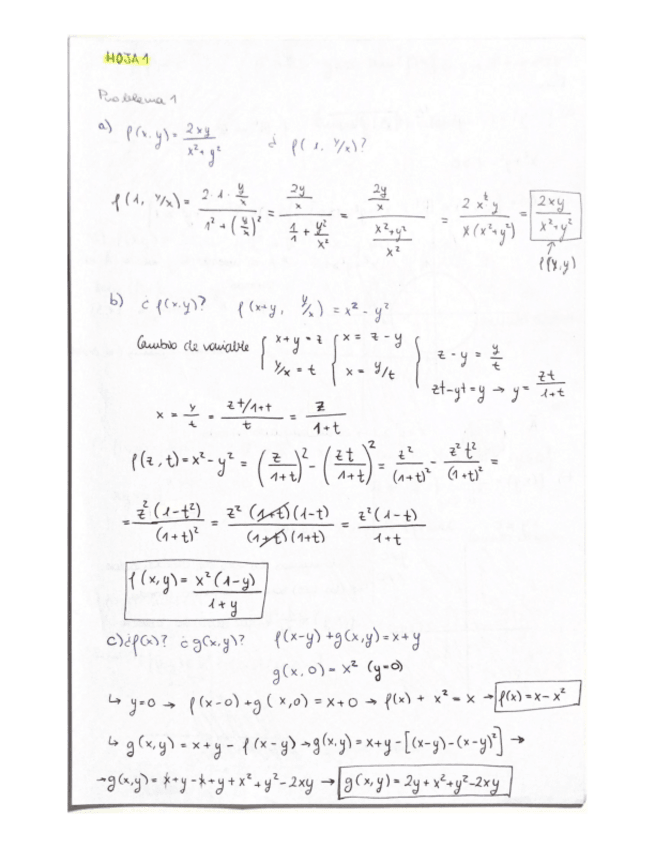 HOJA 1
Problema 1
a) f(x,y) = 2xy/(x²+y²) ¿ f(1, y/x)?
f(1, y/x) = (2·1·y/x)/(1²+(y/x)²) = (2y/x)/(1/1 + y²/x²) = (2y/x)/((x²+y²)/x²) = 2x²y/(x(x²+y²)) = 2xy/(x²+y²)
↑
f(x,y)
b) ¿ f(x,y)? f(x+y, y/x) = x² - y²
Cambio de variable { x+y = z { x = z - y { z - y = y/t
y/x = t x = y/t zt-yt=y → y = zt/(1+t)
x = y/t = (zt/1+t)/t = z/(1+t)
f(z,t) = x²-y² = (z/(1+t))² - (zt/(1+t))² = z²/(1+t)² - z²t²/(1+t)² =
= z²(1-t²)/(1+t)² = z²(1+t)(1-t)/((1+t)(1+t)) = z²(1-t)/(1+t)
f(x,y) = x²(1-y)/(1+y)
c) ¿f(x)? ¿g(x,y)? f(x-y) + g(x,y) = x+y
g(x,0) = x² (y=0)
↳ y=0 → f(x-0)+g(x,0) = x+0 → f(x) + x² = x → f(x) = x - x²
↳ g(x,y) = x+y - f(x-y) → g(x,y) = x+y - [(x-y)-(x-y)²] →
→ g(x,y) = x+y-x+y+x²+y²-2xy → g(x,y) = 2y+x²+y²-2xy